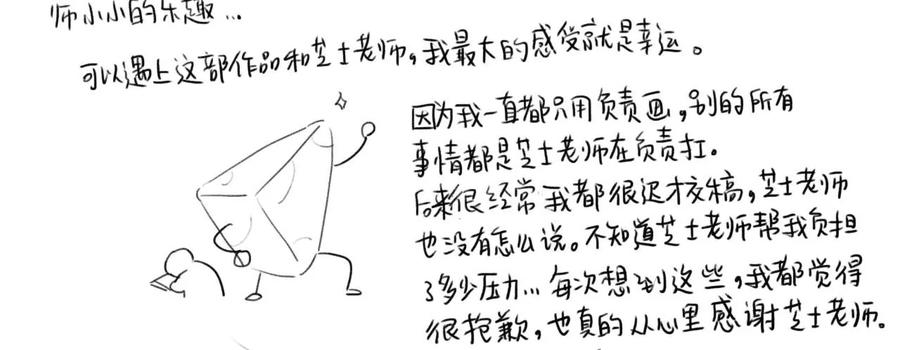 师小小的乐趣...
可以遇上这部作品和芝士老师,我最大的感受就是幸运。
因为我一直都只用负责画,别的所有
事情都是芝士老师在负责扛。
后来很经常我都很迟才交稿,芝士老师
也没有怎么说。不知道芝士老师帮我负担
了多少压力... 每次想到这些,我都觉得
很抱歉,也真的从心里感谢芝士老师。